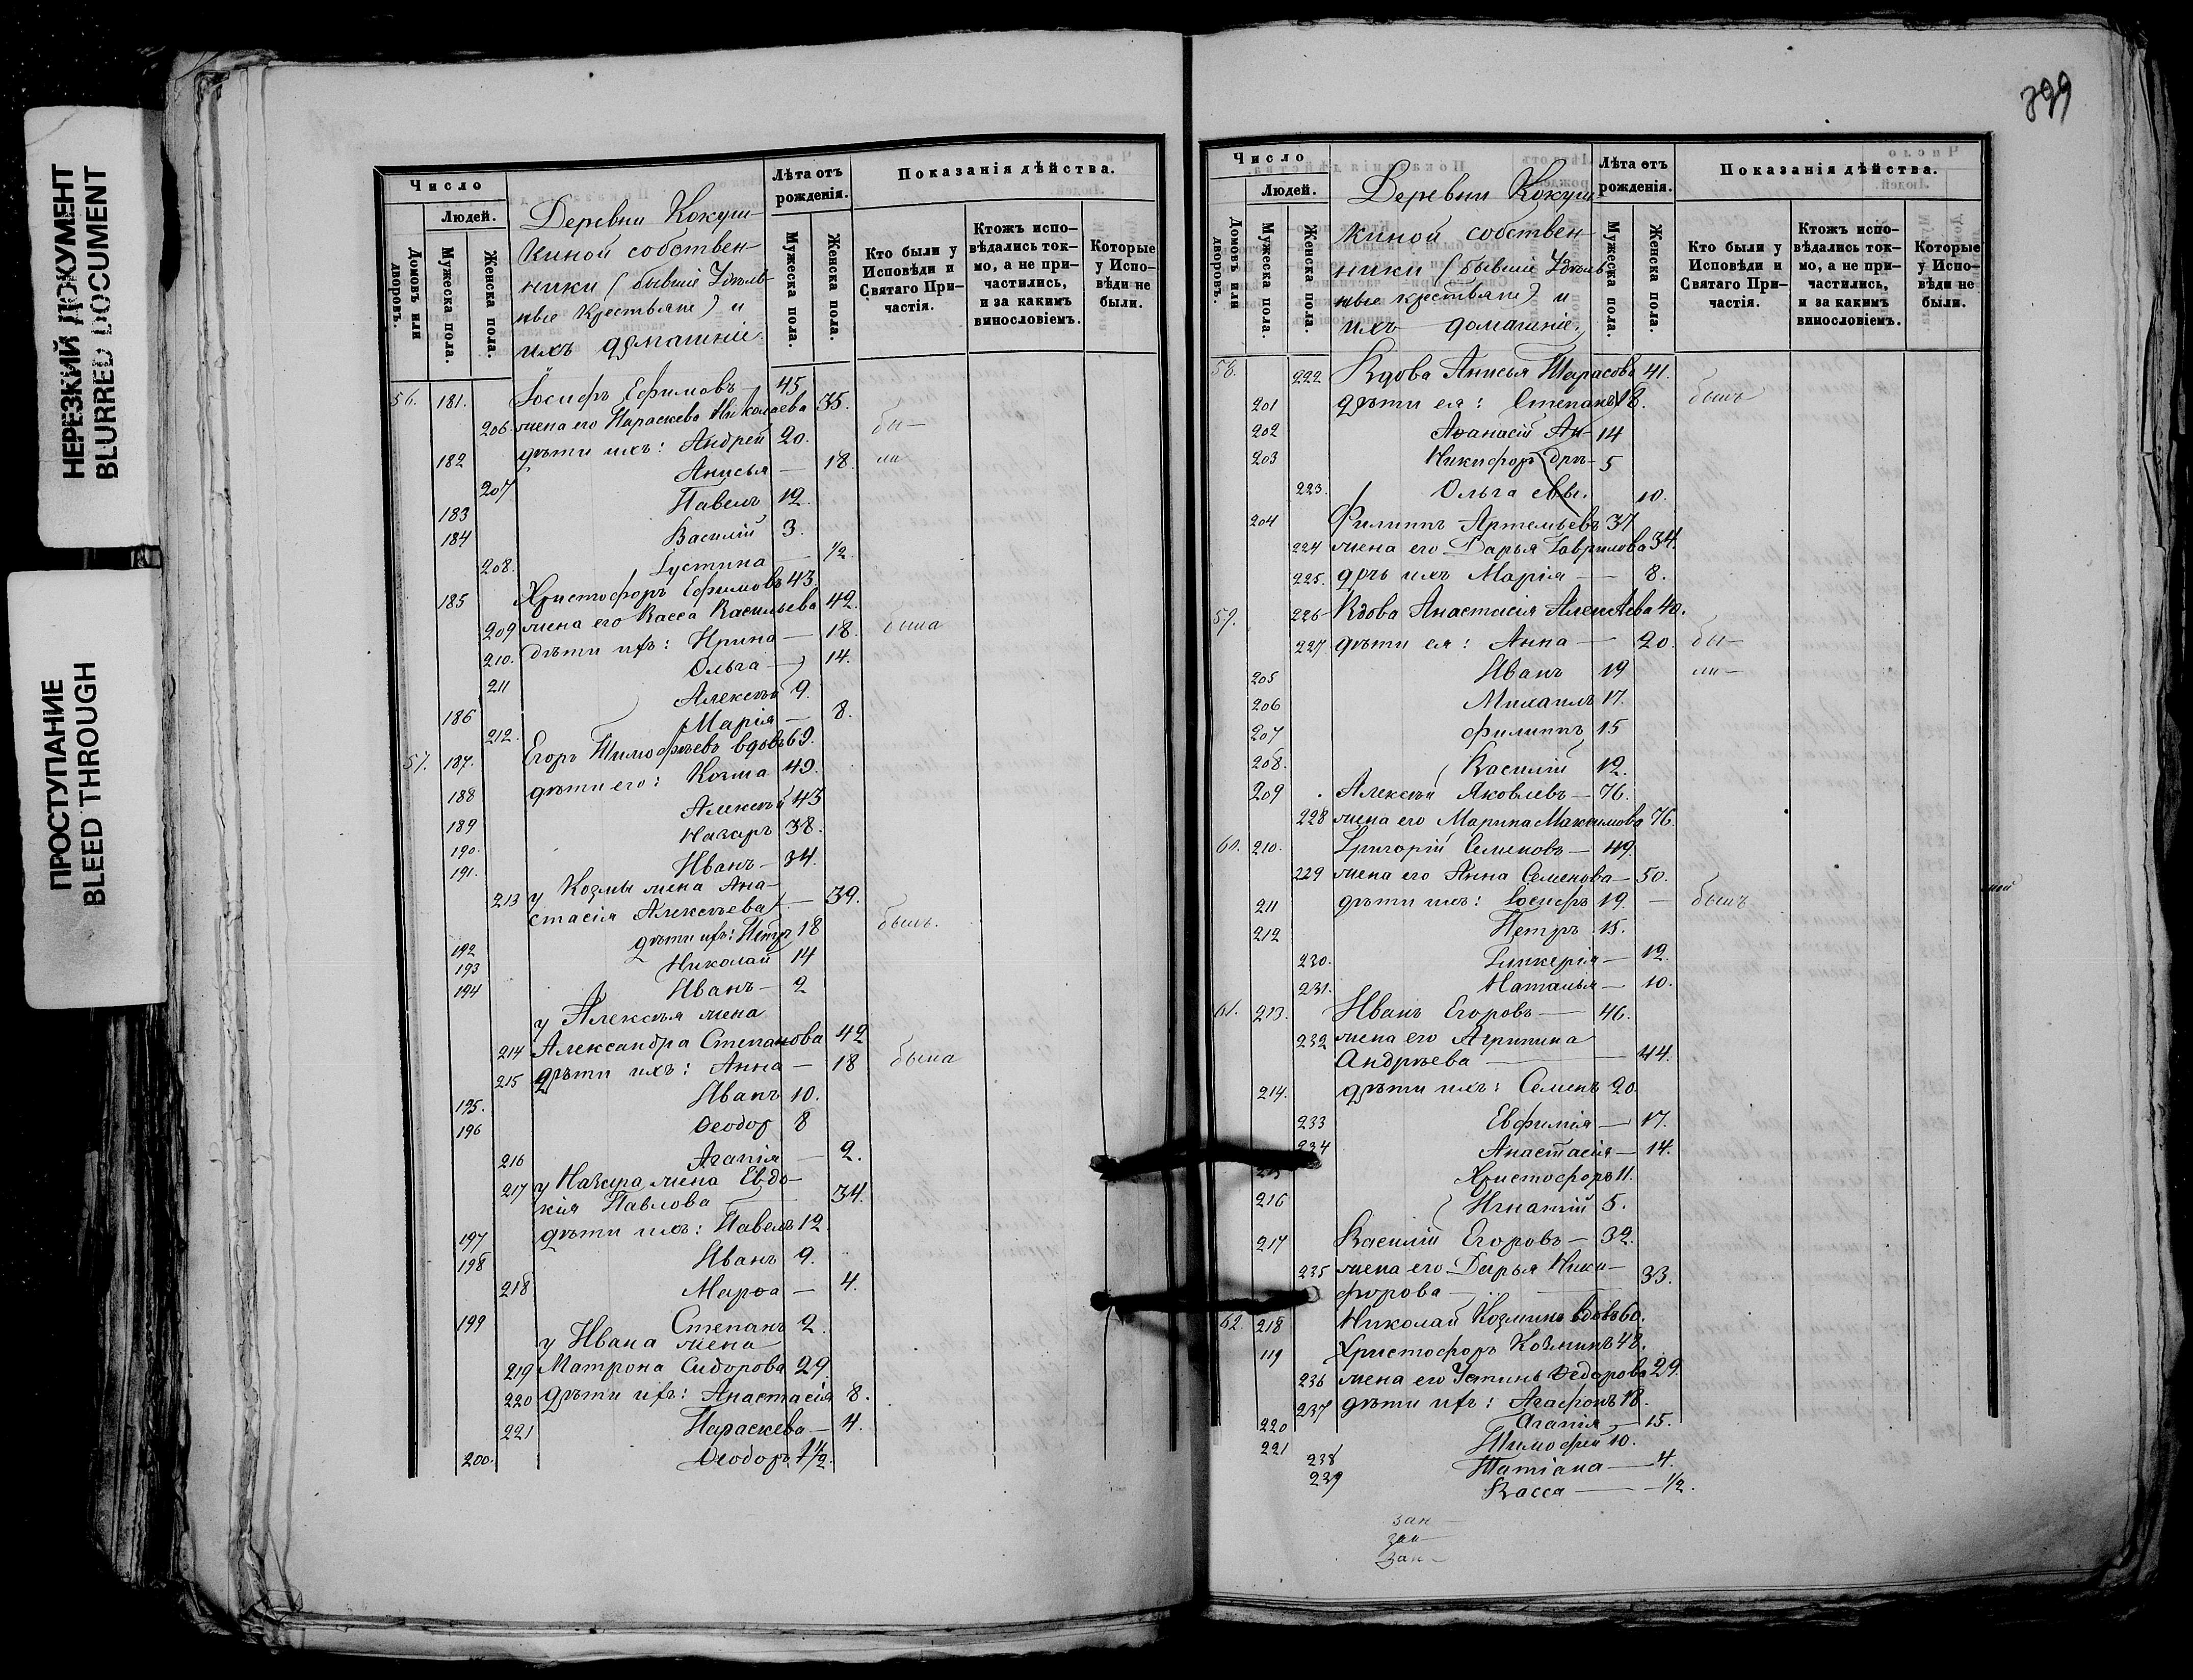 НЕРЕЗКИЙ ДОКУМЕНТ
BLURRED DOCUMENT
ПРОСТУПАНИЕ
BLEED THROUGH
Число
Людей.
Домовъ или дворовъ.
Мужеска пола.
Женска пола.
Деревни Кокуш-
киной собствен-
ники (бывшіе Удѣль-
ные крестьяне) и
ихъ домашніе.
Лѣта отъ рожденія.
Мужеска пола.
Женска пола.
Показанія дѣйства.
Кто были у Исповѣди и Святаго При-частія.
Ктожъ испо-вѣдались ток-мо, а не при-частились, и за какимъ винословіемъ.
Которые у Испо-вѣди не были.
56. 181. Іосифъ Ефимовъ 45.
206. жена его Параскева Николаева 35.
182 дѣти ихъ: Андрей 20. бы-
207 Анисья — 18. ли
183 Павелъ 12.
184 Василій 3.
208. Іустина — 1/2.
185 Христофоръ Ефимовъ 43.
209 жена его Васса Васильева 42.
210. дѣти ихъ: Ирина — 18. была
211 Ольга — 14.
186 Алексѣй 9.
212. Марія — 8.
57. 187. Егоръ Тимофѣевъ вдовъ 69.
188 дѣти его: Козма 49.
189 Алексѣй 43
190. Назаръ 38.
191. Иванъ — 34.
213 у Козмы жена Ана-
стасія Алексѣева — 39.
192 дѣти ихъ: Петръ 18 былъ.
193 Николай 14
194 Иванъ — 2
у Алексѣя жена
214 Александра Степанова 42
215 дѣти ихъ: Анна — 18 была
195. Иванъ 10.
196 Ѳеодор 8
216 Агапія — 2.
217 у Назара жена Евдо-
кія Павлова — 34.
197 дѣти ихъ: Павелъ 12.
198 Иванъ 9.
218 Марѳа — 4.
199 Степанъ 2.
у Ивана жена
219 Матрона Сидорова 29.
220 дѣти ихъ: Анастасія 8.
221 Параскева — 4.
200. Ѳеодоръ 1 1/2.
Число
Людей.
Домовъ или дворовъ.
Мужеска пола.
Женска пола.
Деревни Кокуш-
киной собствен-
ники (бывшіе Удѣль-
ные крестьяне) и
ихъ домашніе.
Лѣта отъ рожденія.
Мужеска пола.
Женска пола.
Показанія дѣйства.
Кто были у Исповѣди и Святаго При-частія.
Ктожъ испо-вѣдались ток-мо, а не при-частились, и за какимъ винословіемъ.
Которые у Испо-вѣди не были.
58. 222. Вдова Анисья Тарасова 41.
201 дѣти ея: Степанъ 18. былъ
202 Аѳанасій Ан- 14
203 Никифоръ дре- 5
223. Ольга евы. 10.
204 Филиппъ Артемьевъ 37
224 жена его Дарья Гаврилова 34.
225. дчь ихъ Марія — 8.
59. 226 Вдова Анастасія Алексѣева 40.
227 дѣти ея: Анна — 20. бы-
205 Иванъ 19 ли —
206 Михаилъ 17.
207 Филиппъ 15
208. Василій 12.
209 Алексѣй Яковлевъ — 76.
228 жена его Марина Максимова 76.
60. 210. Григорій Семеновъ — 49.
229 жена его Анна Семенова — 50.
211 дѣти ихъ: Іосифъ 19. — былъ
212 Петръ 15.
230. Гликерія — 12.
231. Наталья — 10.
61. 213. Иванъ Егоровъ — 46.
232 жена его Агрипина
Андрѣева — 44.
214. дѣти ихъ: Семенъ 20
233 Евфимія — 17.
234 Анастасія — 14.
Христофоръ 11.
216 Игнатій 5.
217 Василій Егоровъ — 32.
235 жена его Дарья Ники-
форова — 33.
62. 218 Николай Козминъ вдовъ 60.
119 Христофоръ Козминъ 48.
236 жена его Устинья Ѳедорова 29.
237 дѣти ихъ: Агафонъ 18.
220 Агапія — 15.
221 Тимофей 10.
238 Татіана — 4.
239 Васса — 1/2.
зан —
зан —
зан —